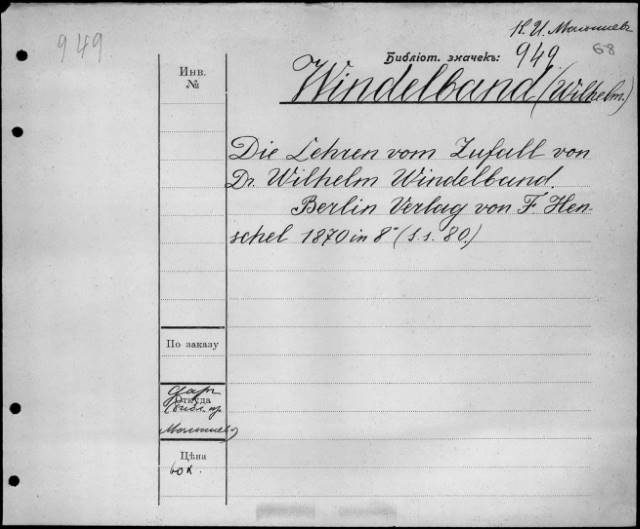 К. И. Малышевъ
949
Библіот. значекъ:
949
68
Инв.
№
Windelband (Wilhelm.)
Die Lehren vom Zufall von
Dr. Wilhelm Windelband.
Berlin Verlag von F. Hen-
schel 1870 in 8° (S.s. 80.)
По заказу
даръ
Откуда
библ. пр
Малышева
Цѣна
60 к.